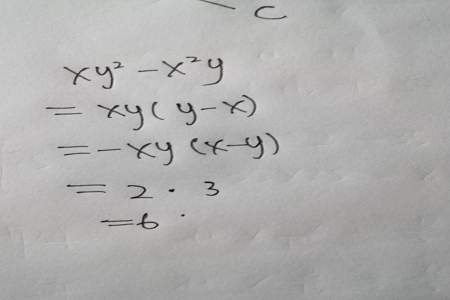 C
xy² - x²y
= xy(y-x)
= -xy(x-y)
= 2 · 3
= 6